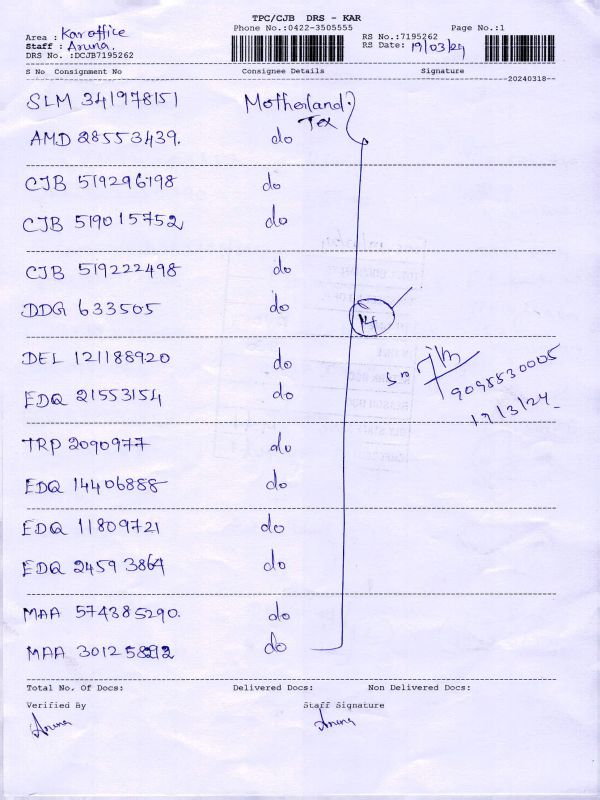 TPC/CJB DRS - KAR
Phone No.:0422-3505555 Page No.:1
Area : Kar office
Staff : Aruna.
DRS No. :DCJB7195262
RS No.:7195262
RS Date: 19/03/24
S No Consignment No Consignee Details Signature
20240318
SLM 341978151 Motherland
Tex
AMD 28553439. do
CJB 519296198 do
CJB 519015752 do
CJB 519222498 do
DDG 633505 do
14
DEL 121188920 do
9095530005
EDQ 21553154 do
19/3/24
TRP 2090977 do
EDQ 14406888 do
EDQ 11809721 do
EDQ 24593864 do
MAA 574385290. do
MAA 301258292 do
Total No. Of Docs: Delivered Docs: Non Delivered Docs:
Verified By Staff Signature
Aruna Aruna